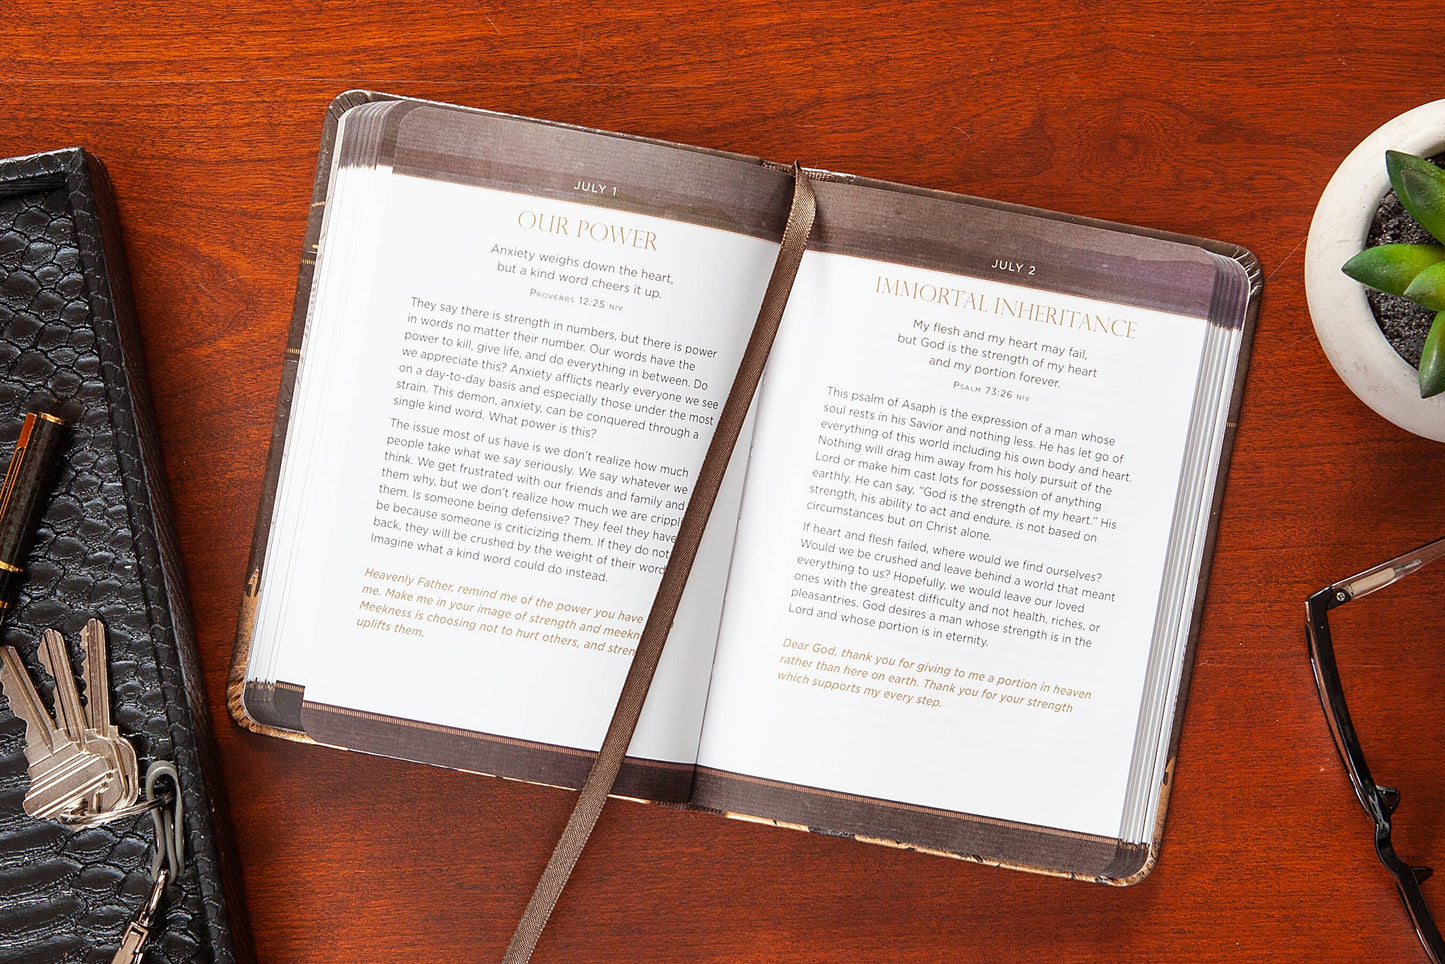 JULY 1
OUR POWER
Anxiety weighs down the heart,
but a kind word cheers it up.
Proverbs 12:25 NIV
They say there is strength in numbers, but there is power
in words no matter their number. Our words have the
power to kill, give life, and do everything in between. Do
we appreciate this? Anxiety afflicts nearly everyone we see
on a day-to-day basis and especially those under the most
strain. This demon, anxiety, can be conquered through a
single kind word. What power is this?
The issue most of us have is we don't realize how much
people take what we say seriously. We say whatever we
think. We get frustrated with our friends and family and
them why, but we don't realize how much we are crippli
them. Is someone being defensive? They feel they have
be because someone is criticizing them. If they do not
back, they will be crushed by the weight of their word
Imagine what a kind word could do instead.
Heavenly Father, remind me of the power you have
me. Make me in your image of strength and meekn
Meekness is choosing not to hurt others, and stren
uplifts them.
JULY 2
IMMORTAL INHERITANCE
My flesh and my heart may fail,
but God is the strength of my heart
and my portion forever.
Psalm 73:26 NIV
This psalm of Asaph is the expression of a man whose
soul rests in his Savior and nothing less. He has let go of
everything of this world including his own body and heart.
Nothing will drag him away from his holy pursuit of the
Lord or make him cast lots for possession of anything
earthly. He can say, "God is the strength of my heart." His
strength, his ability to act and endure, is not based on
circumstances but on Christ alone.
If heart and flesh failed, where would we find ourselves?
Would we be crushed and leave behind a world that meant
everything to us? Hopefully, we would leave our loved
ones with the greatest difficulty and not health, riches, or
pleasantries. God desires a man whose strength is in the
Lord and whose portion is in eternity.
Dear God, thank you for giving to me a portion in heaven
rather than here on earth. Thank you for your strength
which supports my every step.